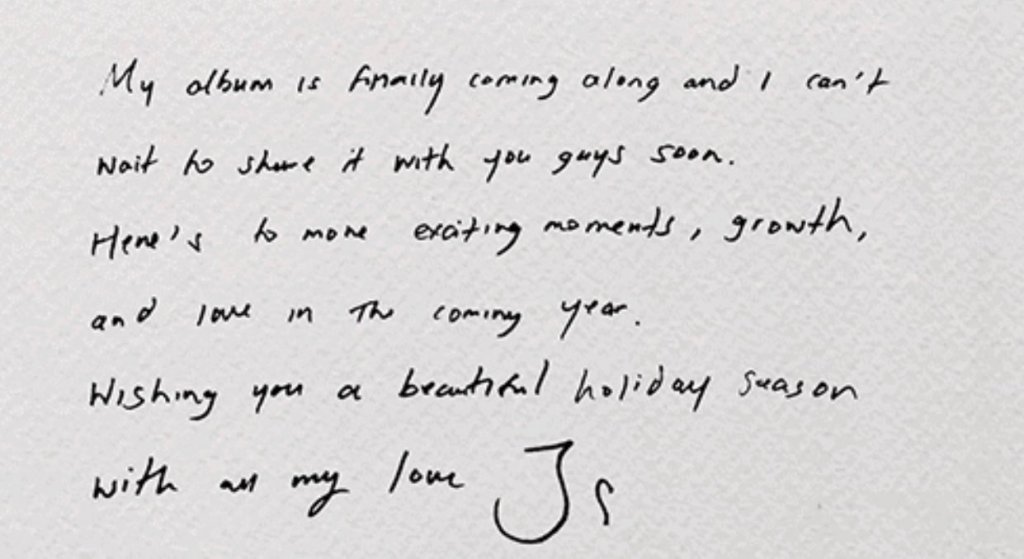 My album is finally coming along and I can't
wait to share it with you guys soon.
Here's to more exciting moments, growth,
and love in the coming year.
Wishing you a beautiful holiday season
with all my love J